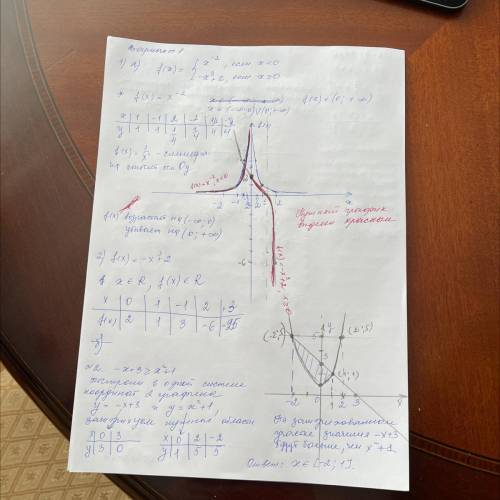 Вариант 1
1) а) f(x) = { x⁻², если x<0
-x³+2, если x≥0
f(x) = x⁻²
f(x) ∈ (0; +∞)
x | 1 | -1 | 2 | -2
y | 1 | 1 | 1/4 | 1/4
f(x)
относит на Oy
f(x) = x⁻², x<0
-2 -1 1 2
f(x) возрастает на (-∞; 0)
убывает на (0; +∞)
Нужный график
выделен красным
-6
2) f(x) = -x³+2
x ∈ R, f(x) ∈ R
x | 0 | 1 | -1 | 2 | +3
f(x) | 2 | 1 | 3 | -6 | -25
№2. -x+3 ≥ x²+1
построим в одной системе
координат 2 графика
y = -x+3 и y = x²+1,
заштрихуем нужную область
x | 0 | 3
y | 3 | 0
x | 0 | 2 | -2
y | 1 | 5 | 5
(-2; 5)
(2; 5)
(1; 2)
-2 0 1 2
y
x
На заштрихованном
значения -x+3
будут больше, чем x²+1
Ответ: x ∈ [-2; 1].